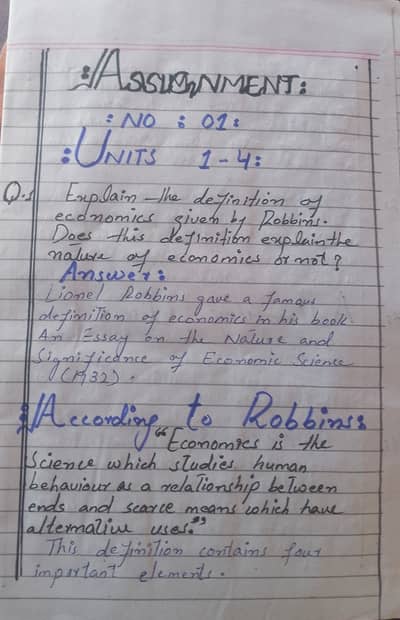 :Assignment:
: No : 01:
:Units 1-4:
Q.1 Explain the definition of
economics given by Robbins.
Does this definition explain the
nature of economics or not?
Answer:
Lionel Robbins gave a famous
definition of economics in his book
An Essay on the Nature and
Significance of Economic Science
(1932).
:According to Robbins:
"Economics is the
Science which studies human
behaviour as a relationship between
ends and scarce means which have
alternative uses."
This definition contains four
important elements.